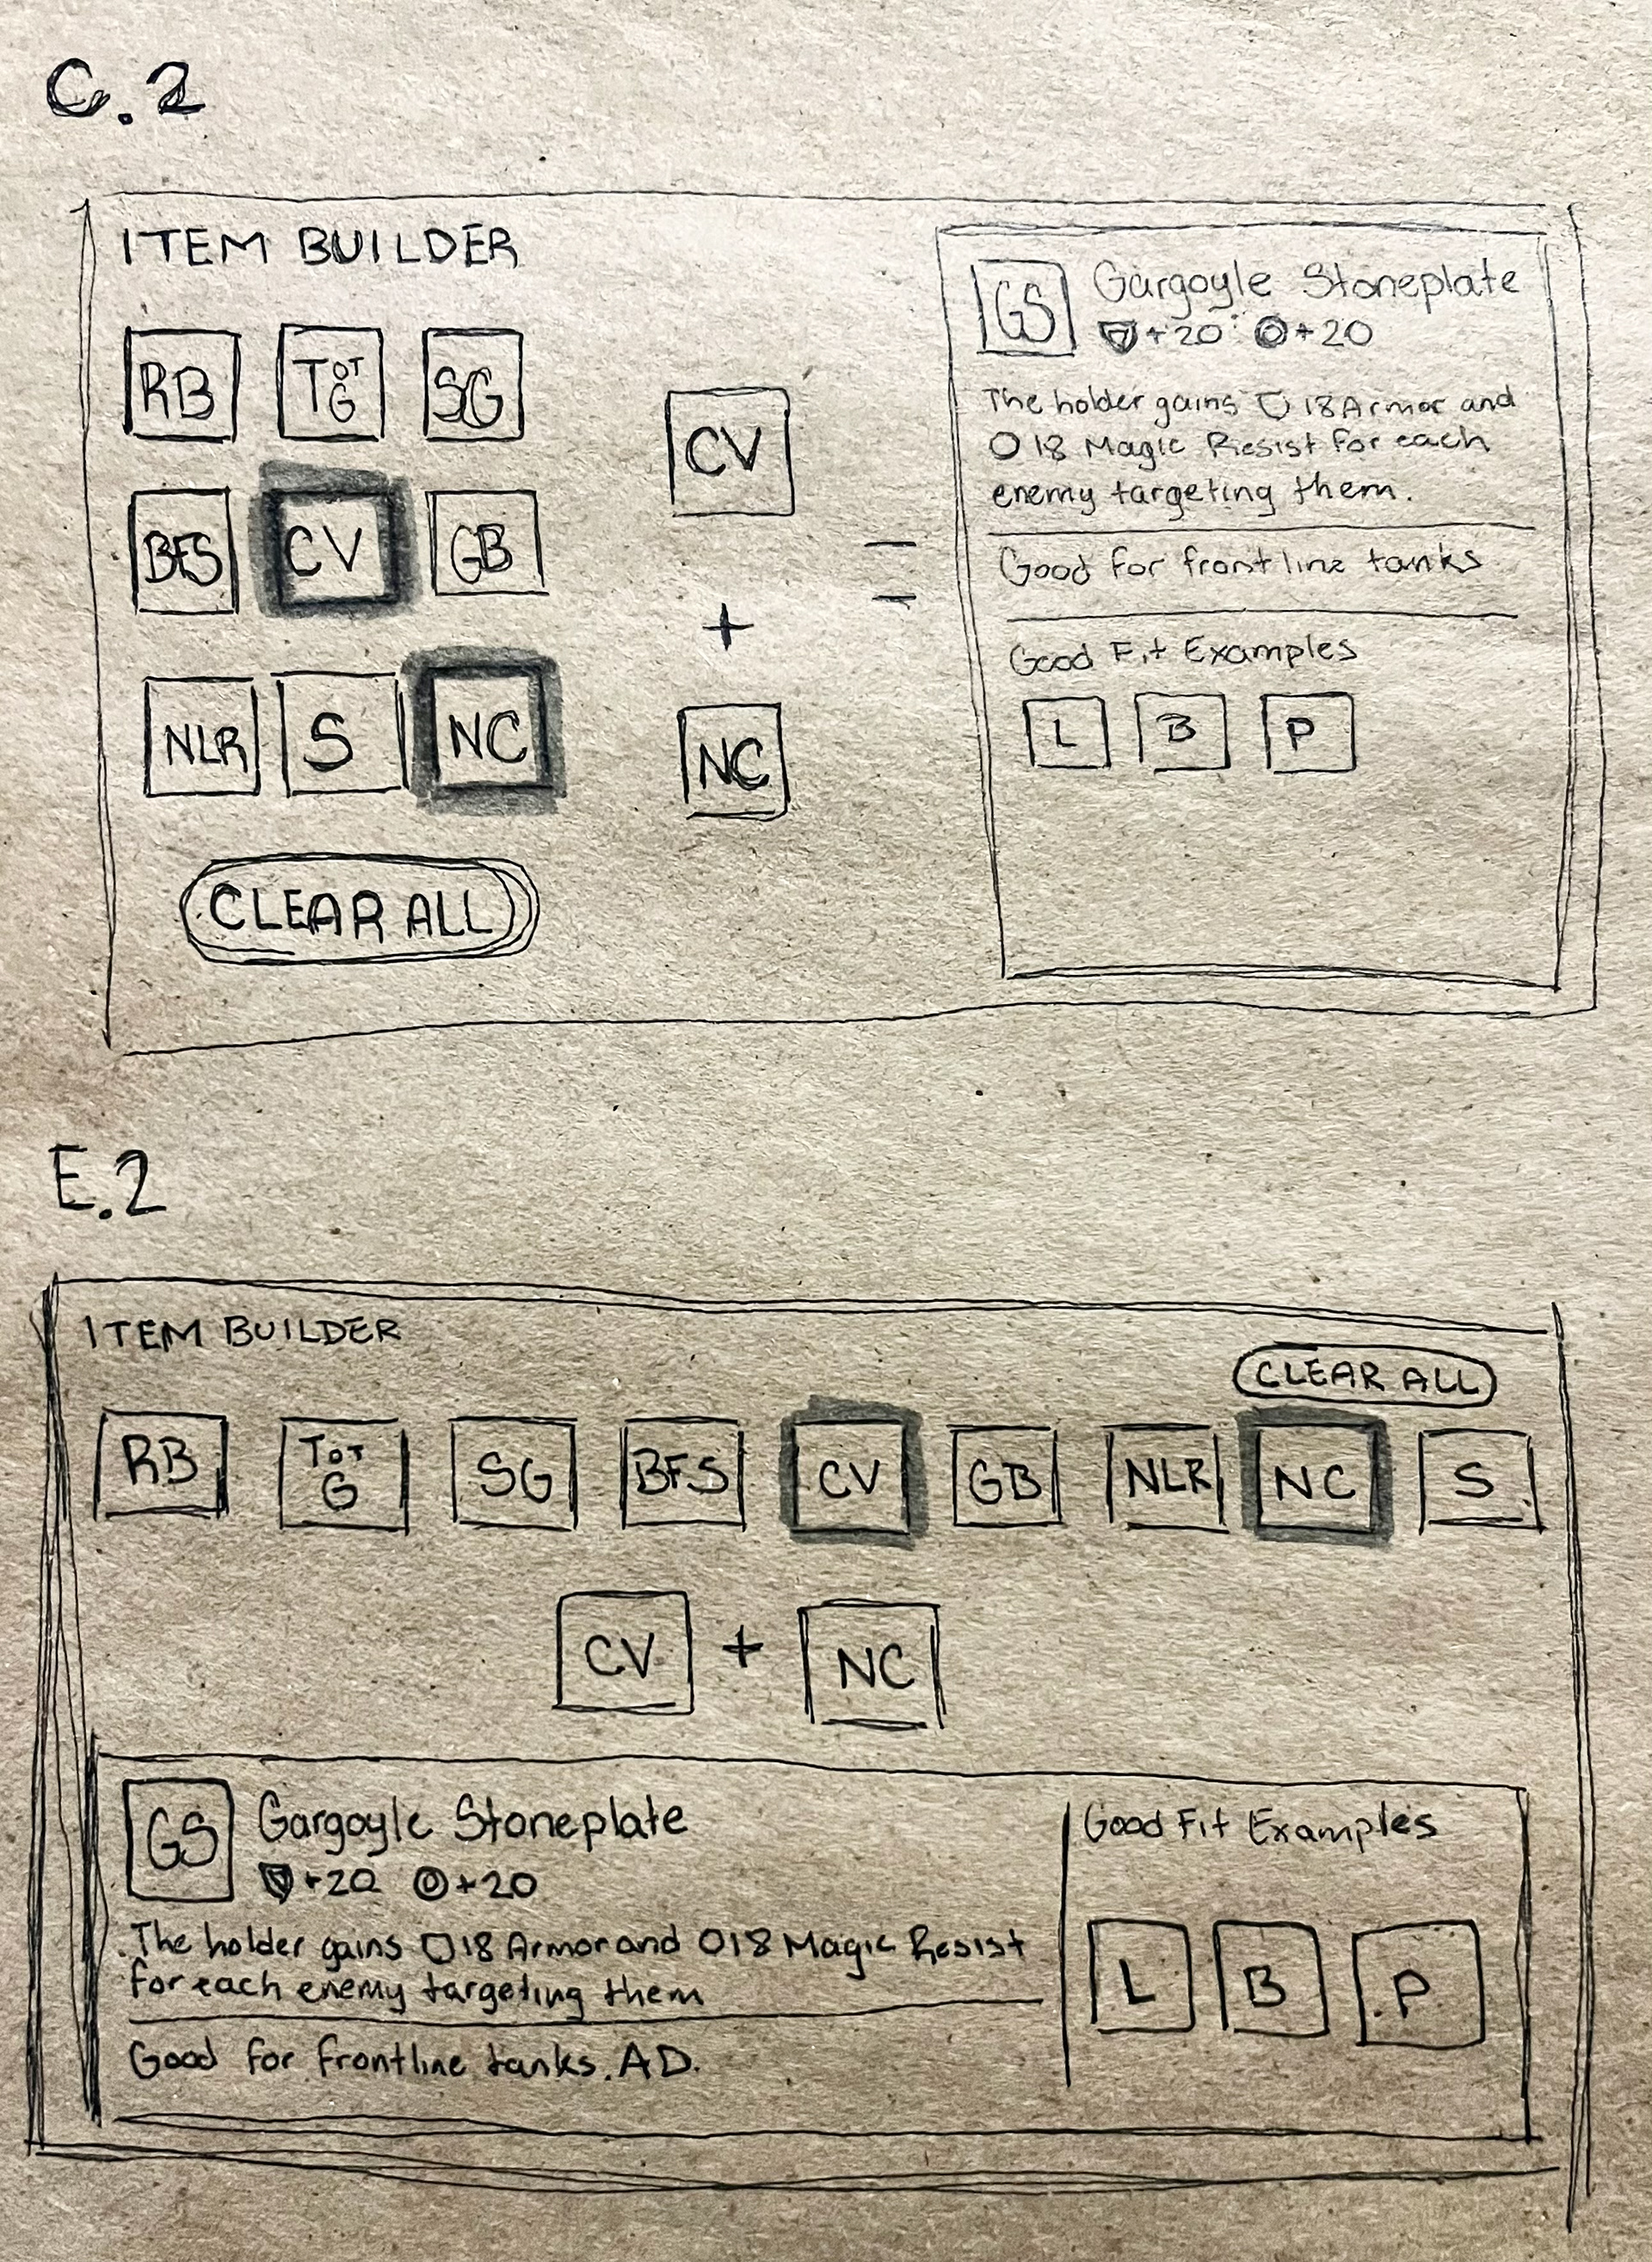 C.2
ITEM BUILDER
RB TOTG SG
BFS CV GB
NLR S NC
CLEAR ALL
CV
+
NC
=
GS Gargoyle Stoneplate
+20 +20
The holder gains 18 Armor and
18 Magic Resist for each
enemy targeting them.
Good for frontline tanks
Good Fit Examples
L B P
E.2
ITEM BUILDER
CLEAR ALL
RB TOTG SG BFS CV GB NLR NC S
CV + NC
GS Gargoyle Stoneplate
+20 +20
The holder gains 18 Armor and 18 Magic Resist
for each enemy targeting them
Good for frontline tanks. AD.
Good Fit Examples
L B P